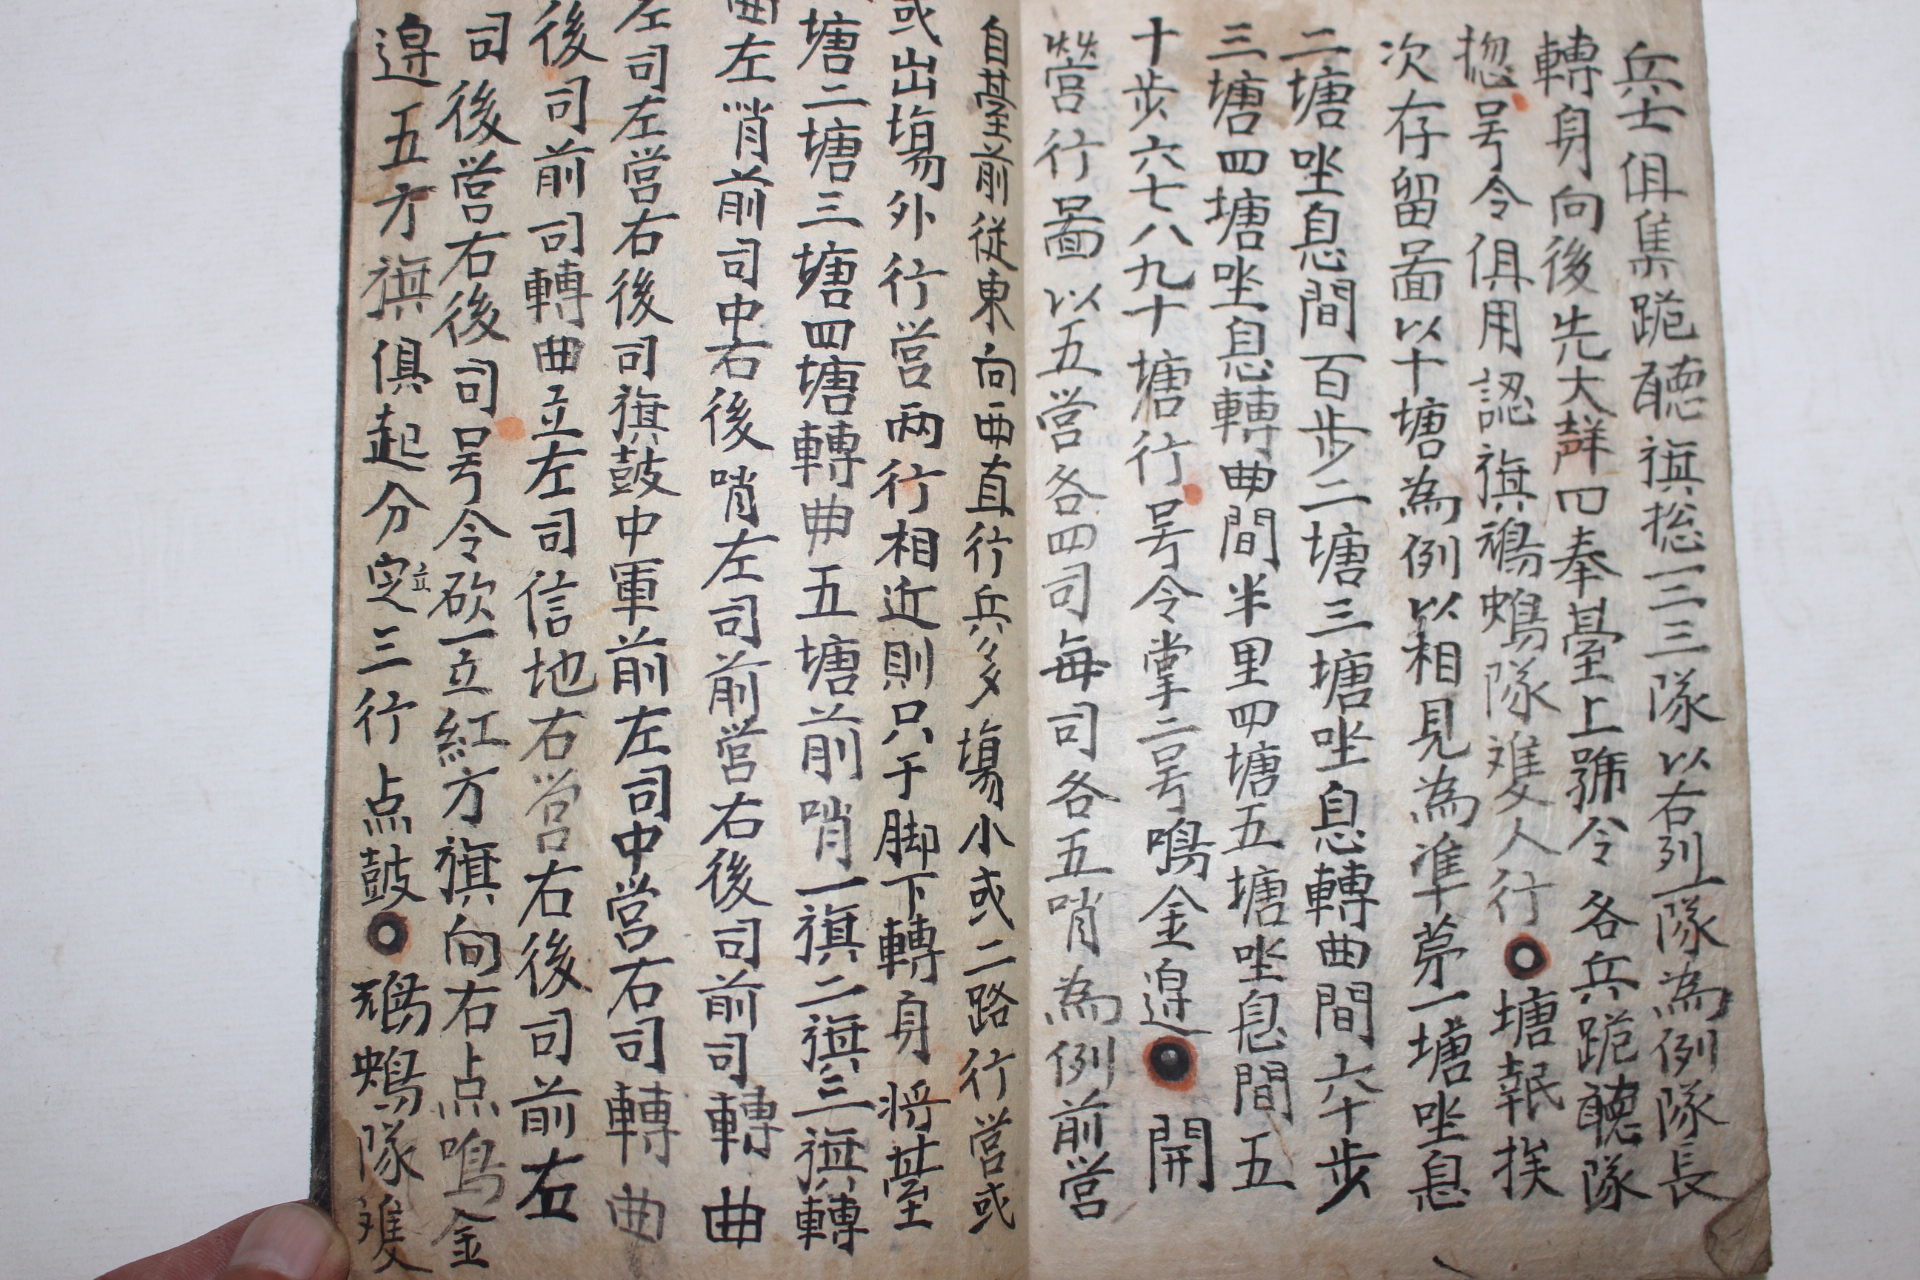 兵士俱集跪聽旗捴一二三隊以右列一隊為例隊長
轉身向後先大聲四奉臺上號令各兵跪聽隊
捴号令俱用認旗鴉鴂隊䨇人行○塘報挨
次存留啚以十塘為例以相見為準苐一塘坐息
二塘坐息間百步二塘三塘坐息轉曲間六十步
三塘四塘坐息轉曲間半里四塘五塘坐息間五
十步六七八九十塘行号令掌二号鳴金邉○開
營行啚以五営各四司每司各五哨為例前営
自臺前從東向西直行兵多塲小或二路行営或
或出塲外行営两行相近則只于脚下轉身將臺
塘二塘三塘四塘轉曲五塘前哨一旗二旗三旗轉
曲左哨前司中右後哨左司前営右後司前司轉曲
左司左営右後司旗鼓中軍前左司中営右司轉曲
後司前司轉曲立左司信地右営右後司前右
司後営右後司号令砍立紅方旗向右点鳴金
邉五方旗俱起分定立三行点鼓○鴉鴂隊䨇